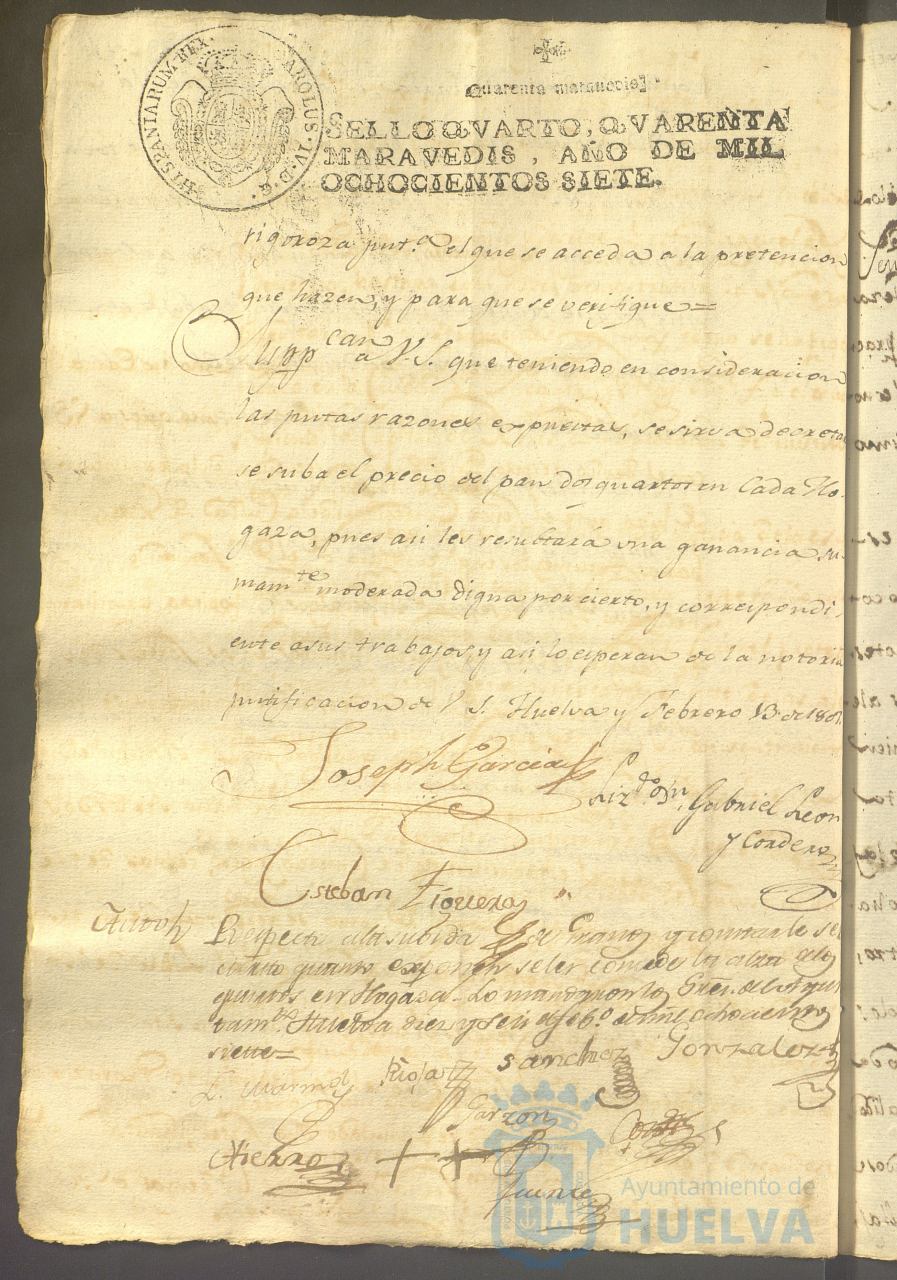 HISPANIARUM REX. CAROLUS IV D. G.
Quarenta marauedis
SELLO QVARTO, QVARENTA
MARAVEDIS, AÑO DE MIL
OCHOCIENTOS SIETE.
rigoroza just.ª el que se acceda a la pretencion
que hazen, y para que se verifique=
Supp can a V. S. que teniendo en consideracion
las justas razones expuestas, se sirva decretar
se suba el precio del pan dos quartos en Cada Ho-
gaza, pues asi les resultará una ganancia su-
mam.te moderada digna por cierto, y correspondi-
ente a sus trabajos, y asi lo esperan de la notoria
justificacion de V. S. Huelva y Febrero 13 de 1807
Joseph Garcia
Liz.do Dn. Gabriel Leon
y Cordero
Esteban Figueroa
Auto
Respecto a la subida de Granos y constarle ser
cierto quanto exponen se les concede la alza de dos
quartos en Hogaza. Lo mandaron los Sres. del Ayun
tam.to Huelva diez y seis de feb.o de mil ochocientos
siete=
Marmol Rioja Sanchez Gonzalez
Garzon
Hierro
Ayuntamiento de
HUELVA